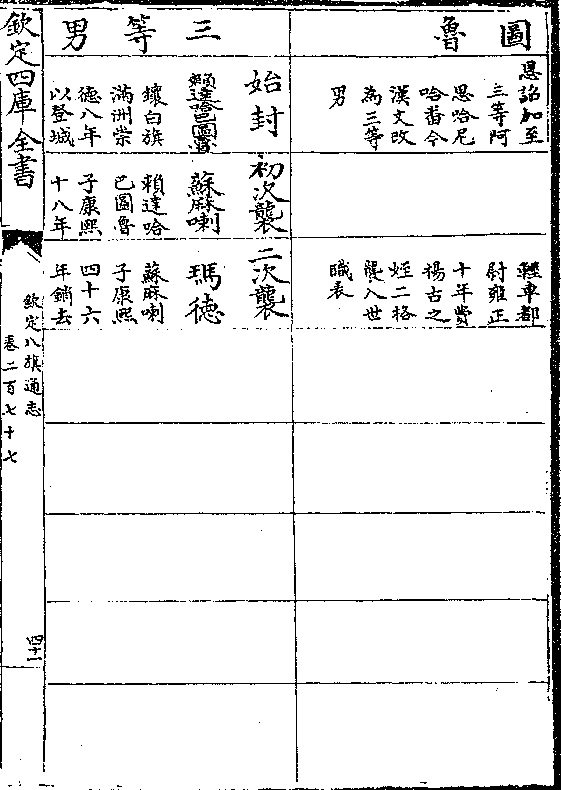 圖魯
恩詔加至
三等阿
思哈尼
哈番今
漢文改
為三等
男
輕車都
尉雍正
十年費
揚古之
姪二格
襲入世
職表
三等男
始封
賴達哈巴圖魯
鑲白旗
滿洲崇
德八年
以登城
初次襲
蘇麻喇
賴達哈
巴圖魯
子康熙
十八年
二次襲
瑪德
蘇麻喇
子康熙
四十六
年銷去
欽定四庫全書
欽定八旗通志
卷二百七十七
四十一